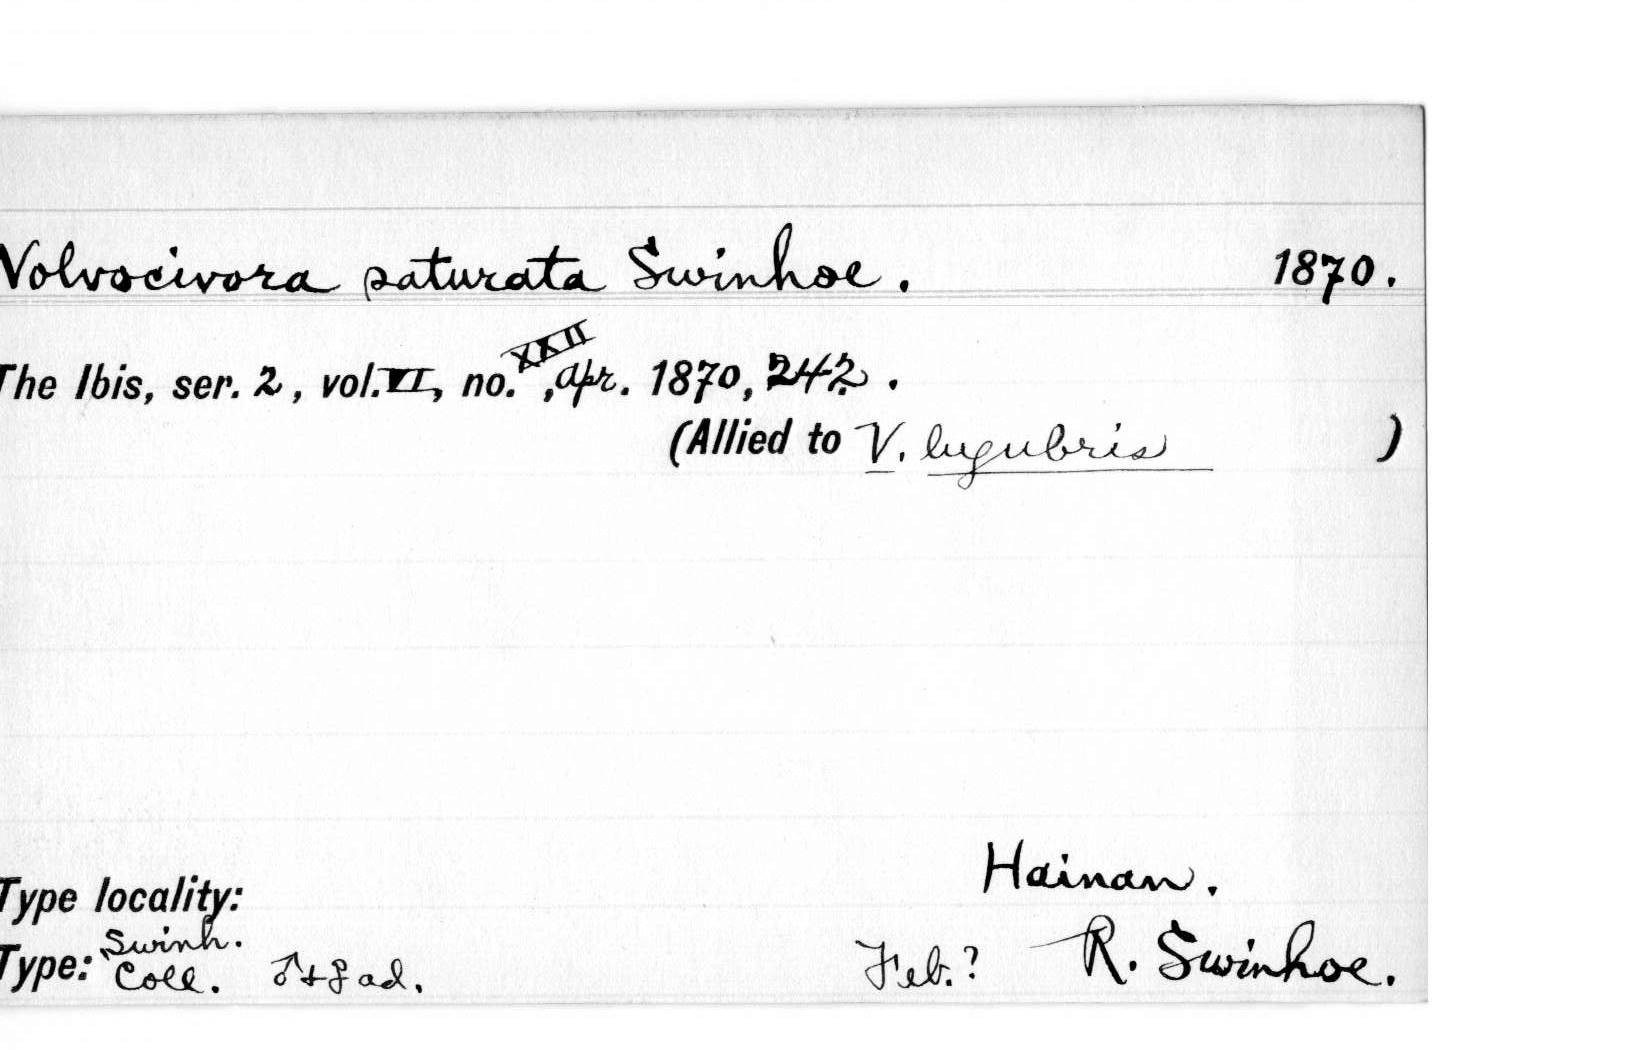 Volvocivora saturata Swinhoe. 1870.
The Ibis, ser. 2, vol. VI, no. XXII, Apr. 1870, 242.
(Allied to V. lugubris )
Hainan.
Type locality:
Type: Swinh. Coll. ♂+♀ ad. Feb.? R. Swinhoe.